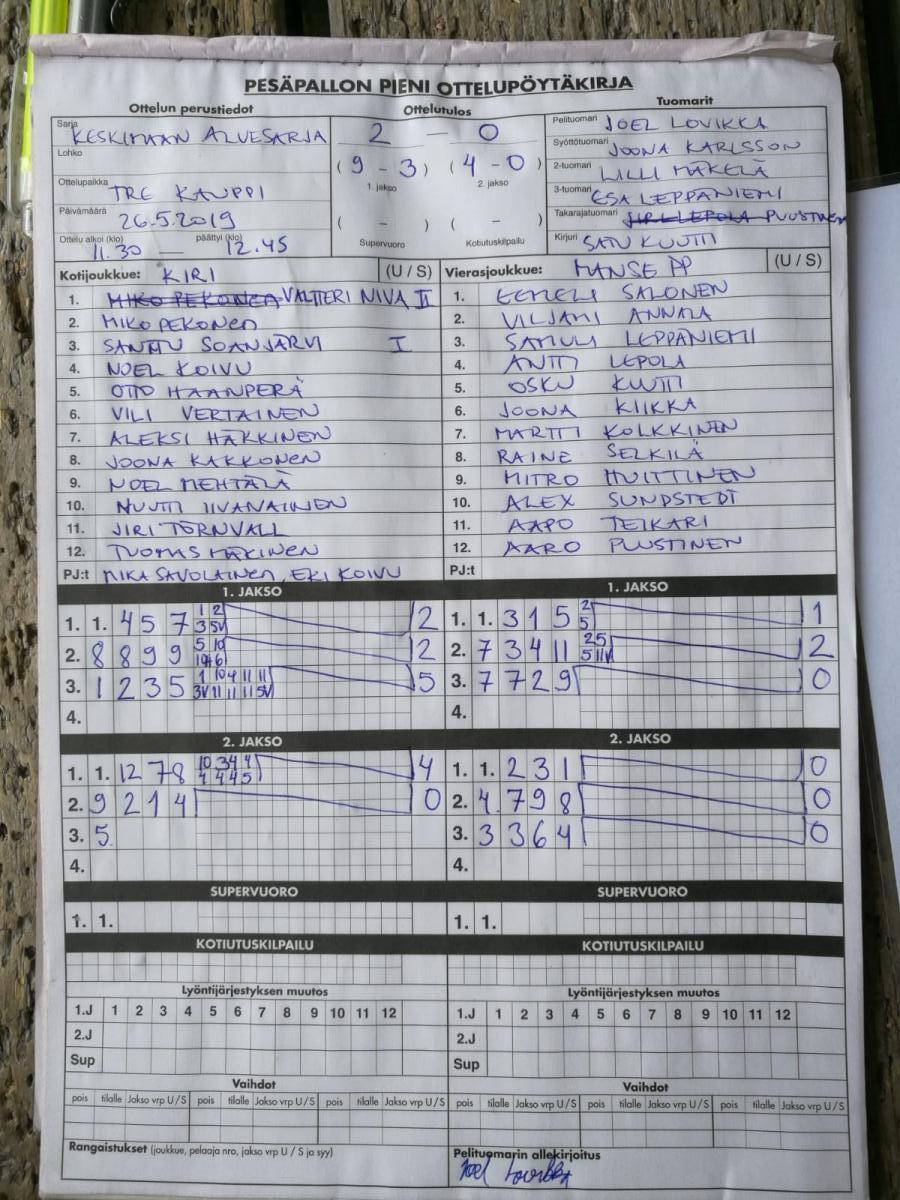 PESÄPALLON PIENI OTTELUPÖYTÄKIRJA
Ottelun perustiedot
Sarja KESKIMAAN ALUESARJA
Lohko
Ottelupaikka TRE KAUPPI
Päivämäärä 26.5.2019
Ottelu alkoi (klo) 11.30 — päättyi (klo) 12.45
Ottelutulos
2 — 0
(9 - 3) (4 - 0)
1. jakso 2. jakso
( - ) ( - )
Supervuoro Kotiutuskilpailu
Tuomarit
Pelituomari JOEL LOVIKKA
Syöttötuomari JOONA KARLSSON
2-tuomari WILLI MÄKELÄ
3-tuomari ESA LEPPÄNIEMI
Takarajatuomari PUUSTINEN
Kirjuri SATU KUUTTI
Kotijoukkue: KIRI (U / S)
1. MIKO PEKONEN VALTTERI NIVA II
2. MIKO PEKONEN
3. SANTTU SOANJÄRVI I
4. NOEL KOIVU
5. OTTO HAANPERÄ
6. VILI VERTAINEN
7. ALEKSI HÄKKINEN
8. JOONA KAKKONEN
9. NOEL MEHTÄLÄ
10. NUUTTI IIVANAINEN
11. JIRI TÖRNVALL
12. TUOMAS MÄKINEN
PJ:t MIKA SAVOLAINEN, EKI KOIVU
Vierasjoukkue: MANSE PP (U / S)
1. EEMELI SALONEN
2. VILJAMI ANNALA
3. SAMULI LEPPÄNIEMI
4. ANTTI LEPOLA
5. OSKU KUUTTI
6. JOONA KIIKKA
7. MARTTI KOLKKINEN
8. RAINE SELKILÄ
9. MITRO HUITTINEN
10. ALEX SUNDSTEDT
11. AAPO TEIKARI
12. AARO PUUSTINEN
PJ:t
1. JAKSO
1. 1. 4 5 7 1 2 3 5V 2
2. 8 8 9 9 5 10 2
3. 1 2 3 5 1 10 4 11 11 3V 11 11 11 5V 5
4.
1. JAKSO
1. 1. 3 1 5 2 5 1
2. 7 3 4 11 2 5 5 11V 2
3. 7 7 2 9 0
4.
2. JAKSO
1. 1. 12 7 8 10 3 4 4 4 4 4 5 4
2. 9 2 1 4 0
3. 5
4.
2. JAKSO
1. 1. 2 3 1 0
2. 4 7 9 8 0
3. 3 3 6 4 0
4.
SUPERVUORO
1. 1.
SUPERVUORO
1. 1.
KOTIUTUSKILPAILU
KOTIUTUSKILPAILU
Lyöntijärjestyksen muutos
1.J 1 2 3 4 5 6 7 8 9 10 11 12
2.J
Sup
Lyöntijärjestyksen muutos
1.J 1 2 3 4 5 6 7 8 9 10 11 12
2.J
Sup
Vaihdot
pois tilalle Jakso vrp U / S pois tilalle Jakso vrp U / S pois tilalle Jakso vrp U / S
Vaihdot
pois tilalle Jakso vrp U / S pois tilalle Jakso vrp U / S pois tilalle Jakso vrp U / S
Rangaistukset (joukkue, pelaaja nro, jakso vrp U / S ja syy)
Pelituomarin allekirjoitus
Joel Lovikka